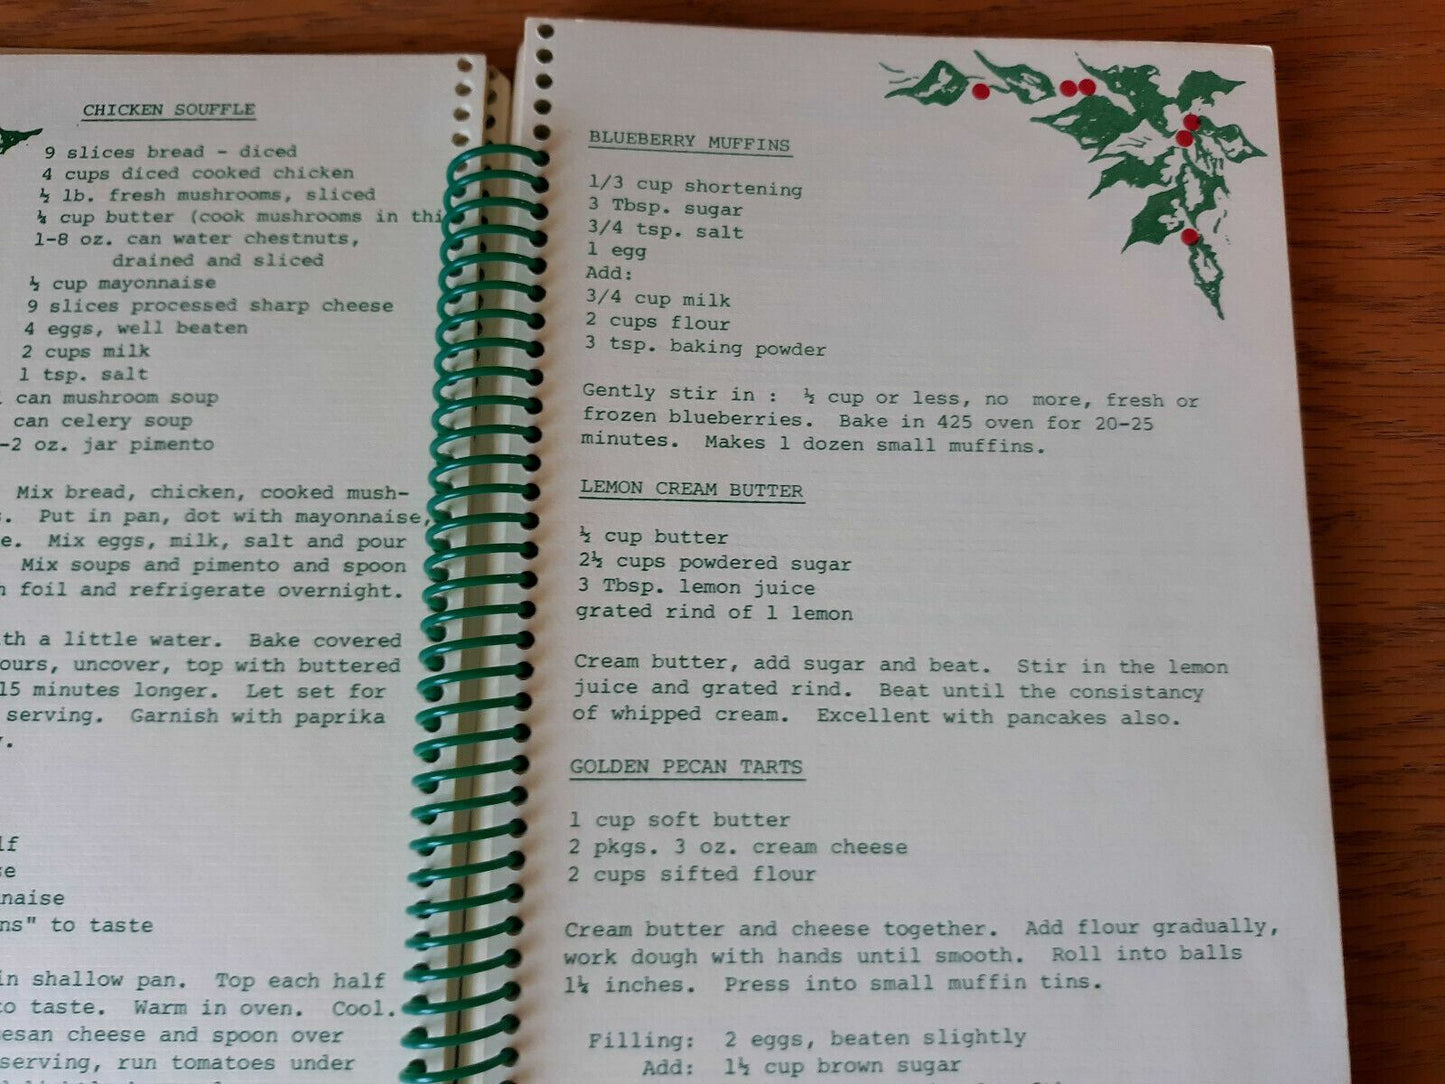 CHICKEN SOUFFLE
9 slices bread - diced
4 cups diced cooked chicken
½ lb. fresh mushrooms, sliced
¼ cup butter (cook mushrooms in thi
1-8 oz. can water chestnuts,
drained and sliced
½ cup mayonnaise
9 slices processed sharp cheese
4 eggs, well beaten
2 cups milk
1 tsp. salt
can mushroom soup
can celery soup
-2 oz. jar pimento
Mix bread, chicken, cooked mush-
s. Put in pan, dot with mayonnaise,
e. Mix eggs, milk, salt and pour
Mix soups and pimento and spoon
h foil and refrigerate overnight.
th a little water. Bake covered
ours, uncover, top with buttered
15 minutes longer. Let set for
serving. Garnish with paprika
y.
lf
se
naise
ns" to taste
in shallow pan. Top each half
to taste. Warm in oven. Cool.
esan cheese and spoon over
serving, run tomatoes under
BLUEBERRY MUFFINS
1/3 cup shortening
3 Tbsp. sugar
3/4 tsp. salt
1 egg
Add:
3/4 cup milk
2 cups flour
3 tsp. baking powder
Gently stir in : ½ cup or less, no more, fresh or
frozen blueberries. Bake in 425 oven for 20-25
minutes. Makes 1 dozen small muffins.
LEMON CREAM BUTTER
½ cup butter
2½ cups powdered sugar
3 Tbsp. lemon juice
grated rind of 1 lemon
Cream butter, add sugar and beat. Stir in the lemon
juice and grated rind. Beat until the consistancy
of whipped cream. Excellent with pancakes also.
GOLDEN PECAN TARTS
1 cup soft butter
2 pkgs. 3 oz. cream cheese
2 cups sifted flour
Cream butter and cheese together. Add flour gradually,
work dough with hands until smooth. Roll into balls
1¼ inches. Press into small muffin tins.
Filling: 2 eggs, beaten slightly
Add: 1½ cup brown sugar